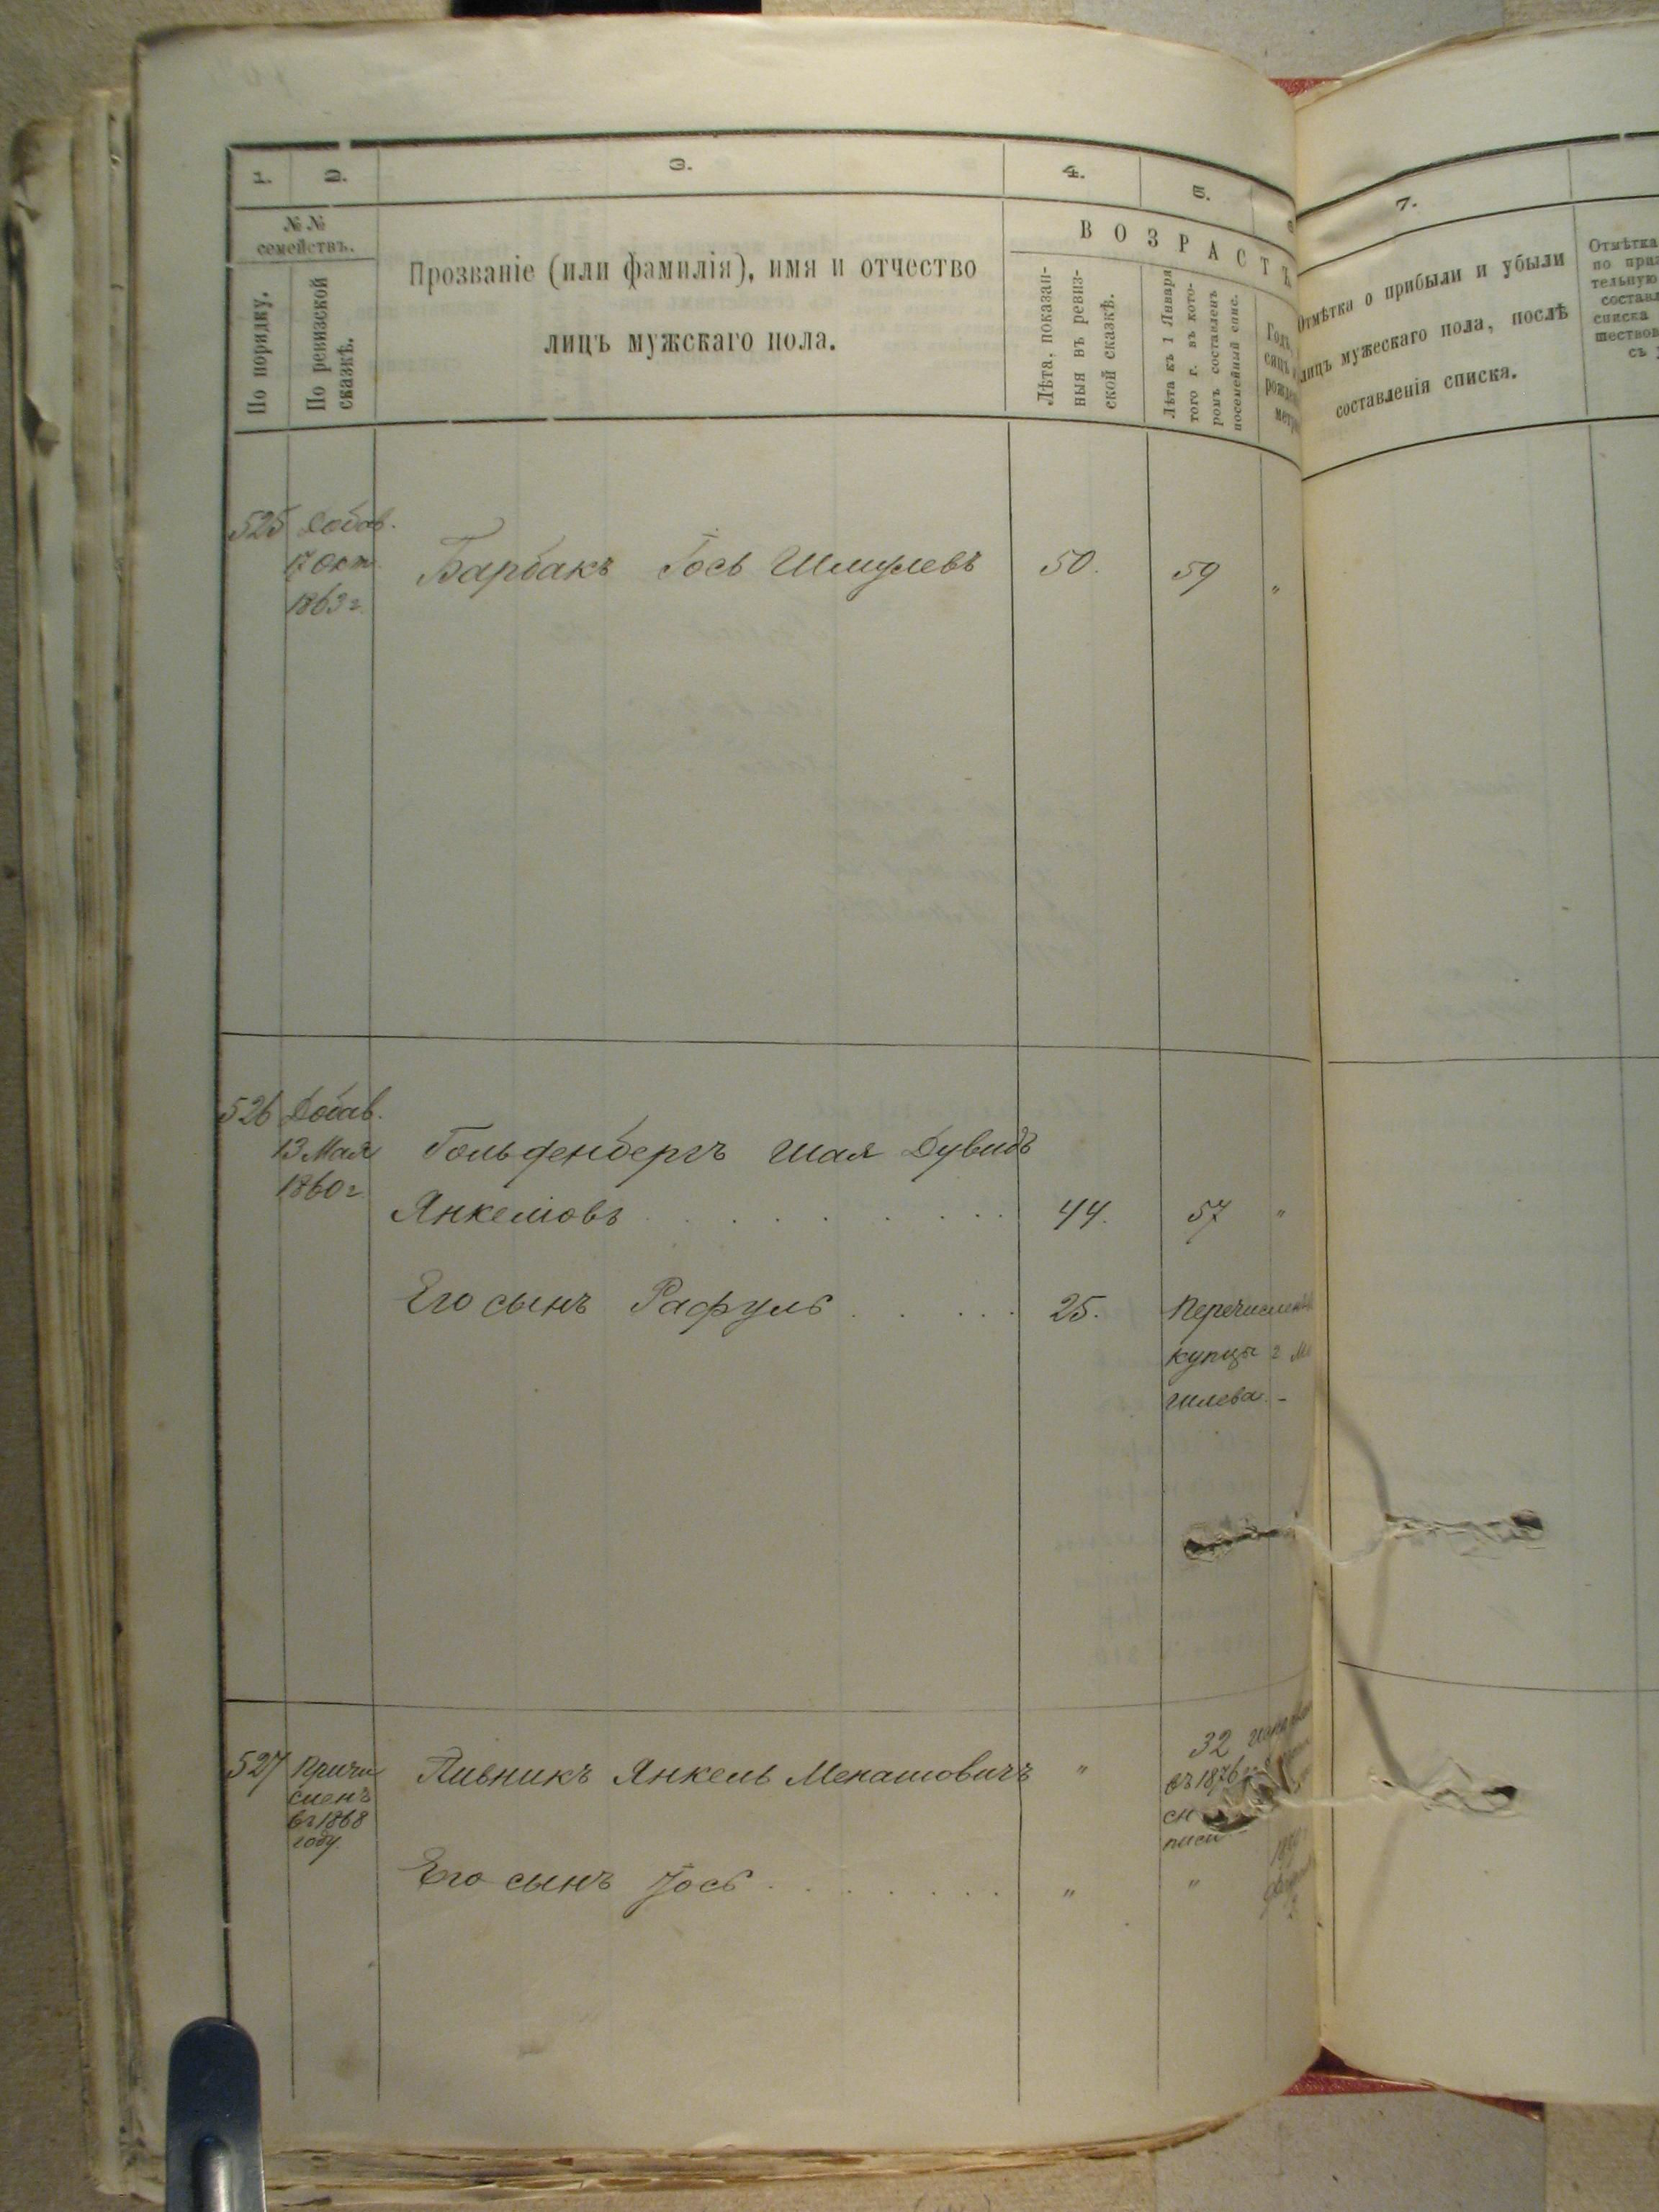 1.
2.
3.
4.
5.
7.
№№
семействъ.
По порядку.
По ревизской
сказкѣ.
Прозваніе (или фамилія), имя и отчество
лицъ мужскаго пола.
ВОЗРАСТЪ
Лѣта, показан-
ныя въ ревиз-
ской сказкѣ.
Лѣта къ 1 Января
того г. въ кото-
ромъ составленъ
посемейный спис.
Отмѣтка о прибыли и убыли
лицъ мужескаго пола, послѣ
составленія списка.
Отмѣтка
по
списка
съ
525 Добав.
17 Окт.
1863 г.
Барбакъ Іось Шмулевъ 50. 59 "
526 Добав.
13 Мая
1860 г.
Гольденбергъ Шая Дувидъ
Янкелiовъ 44. 57 "
Его сынъ Рафуль 25. Перечисленъ
купцы 2 Мо
гилева. -
527 Причи
сленъ
въ 1868
году.
Пивникъ Янкель Менашовичъ " 32
въ 1876
Его сынъ Іось " "